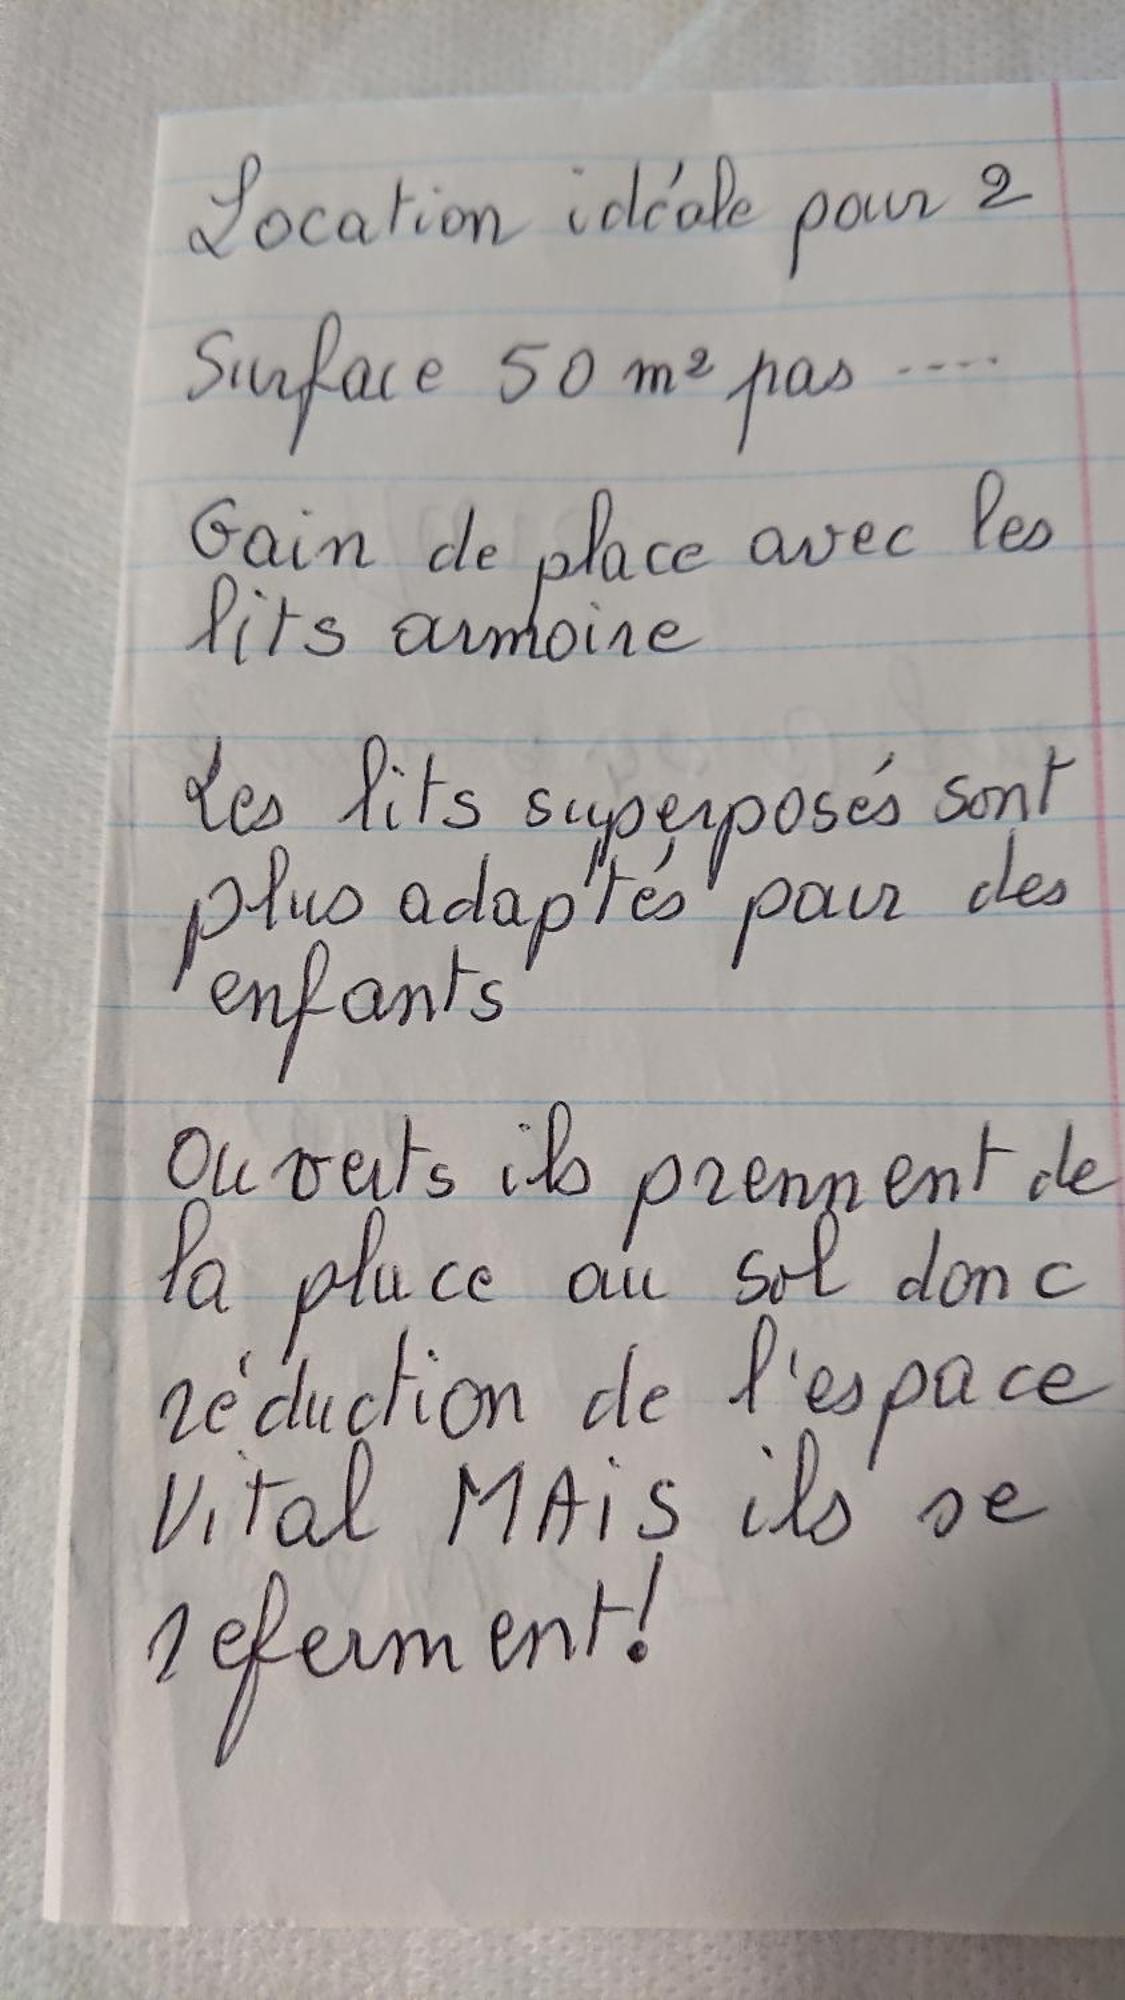 Location idéale pour 2
Surface 50 m² pas ....
Gain de place avec les
lits armoire
Les lits superposés sont
plus adaptés pour des
enfants
Ouverts ils prennent de
la place au sol donc
réduction de l'espace
Vital MAiS ils se
referment!